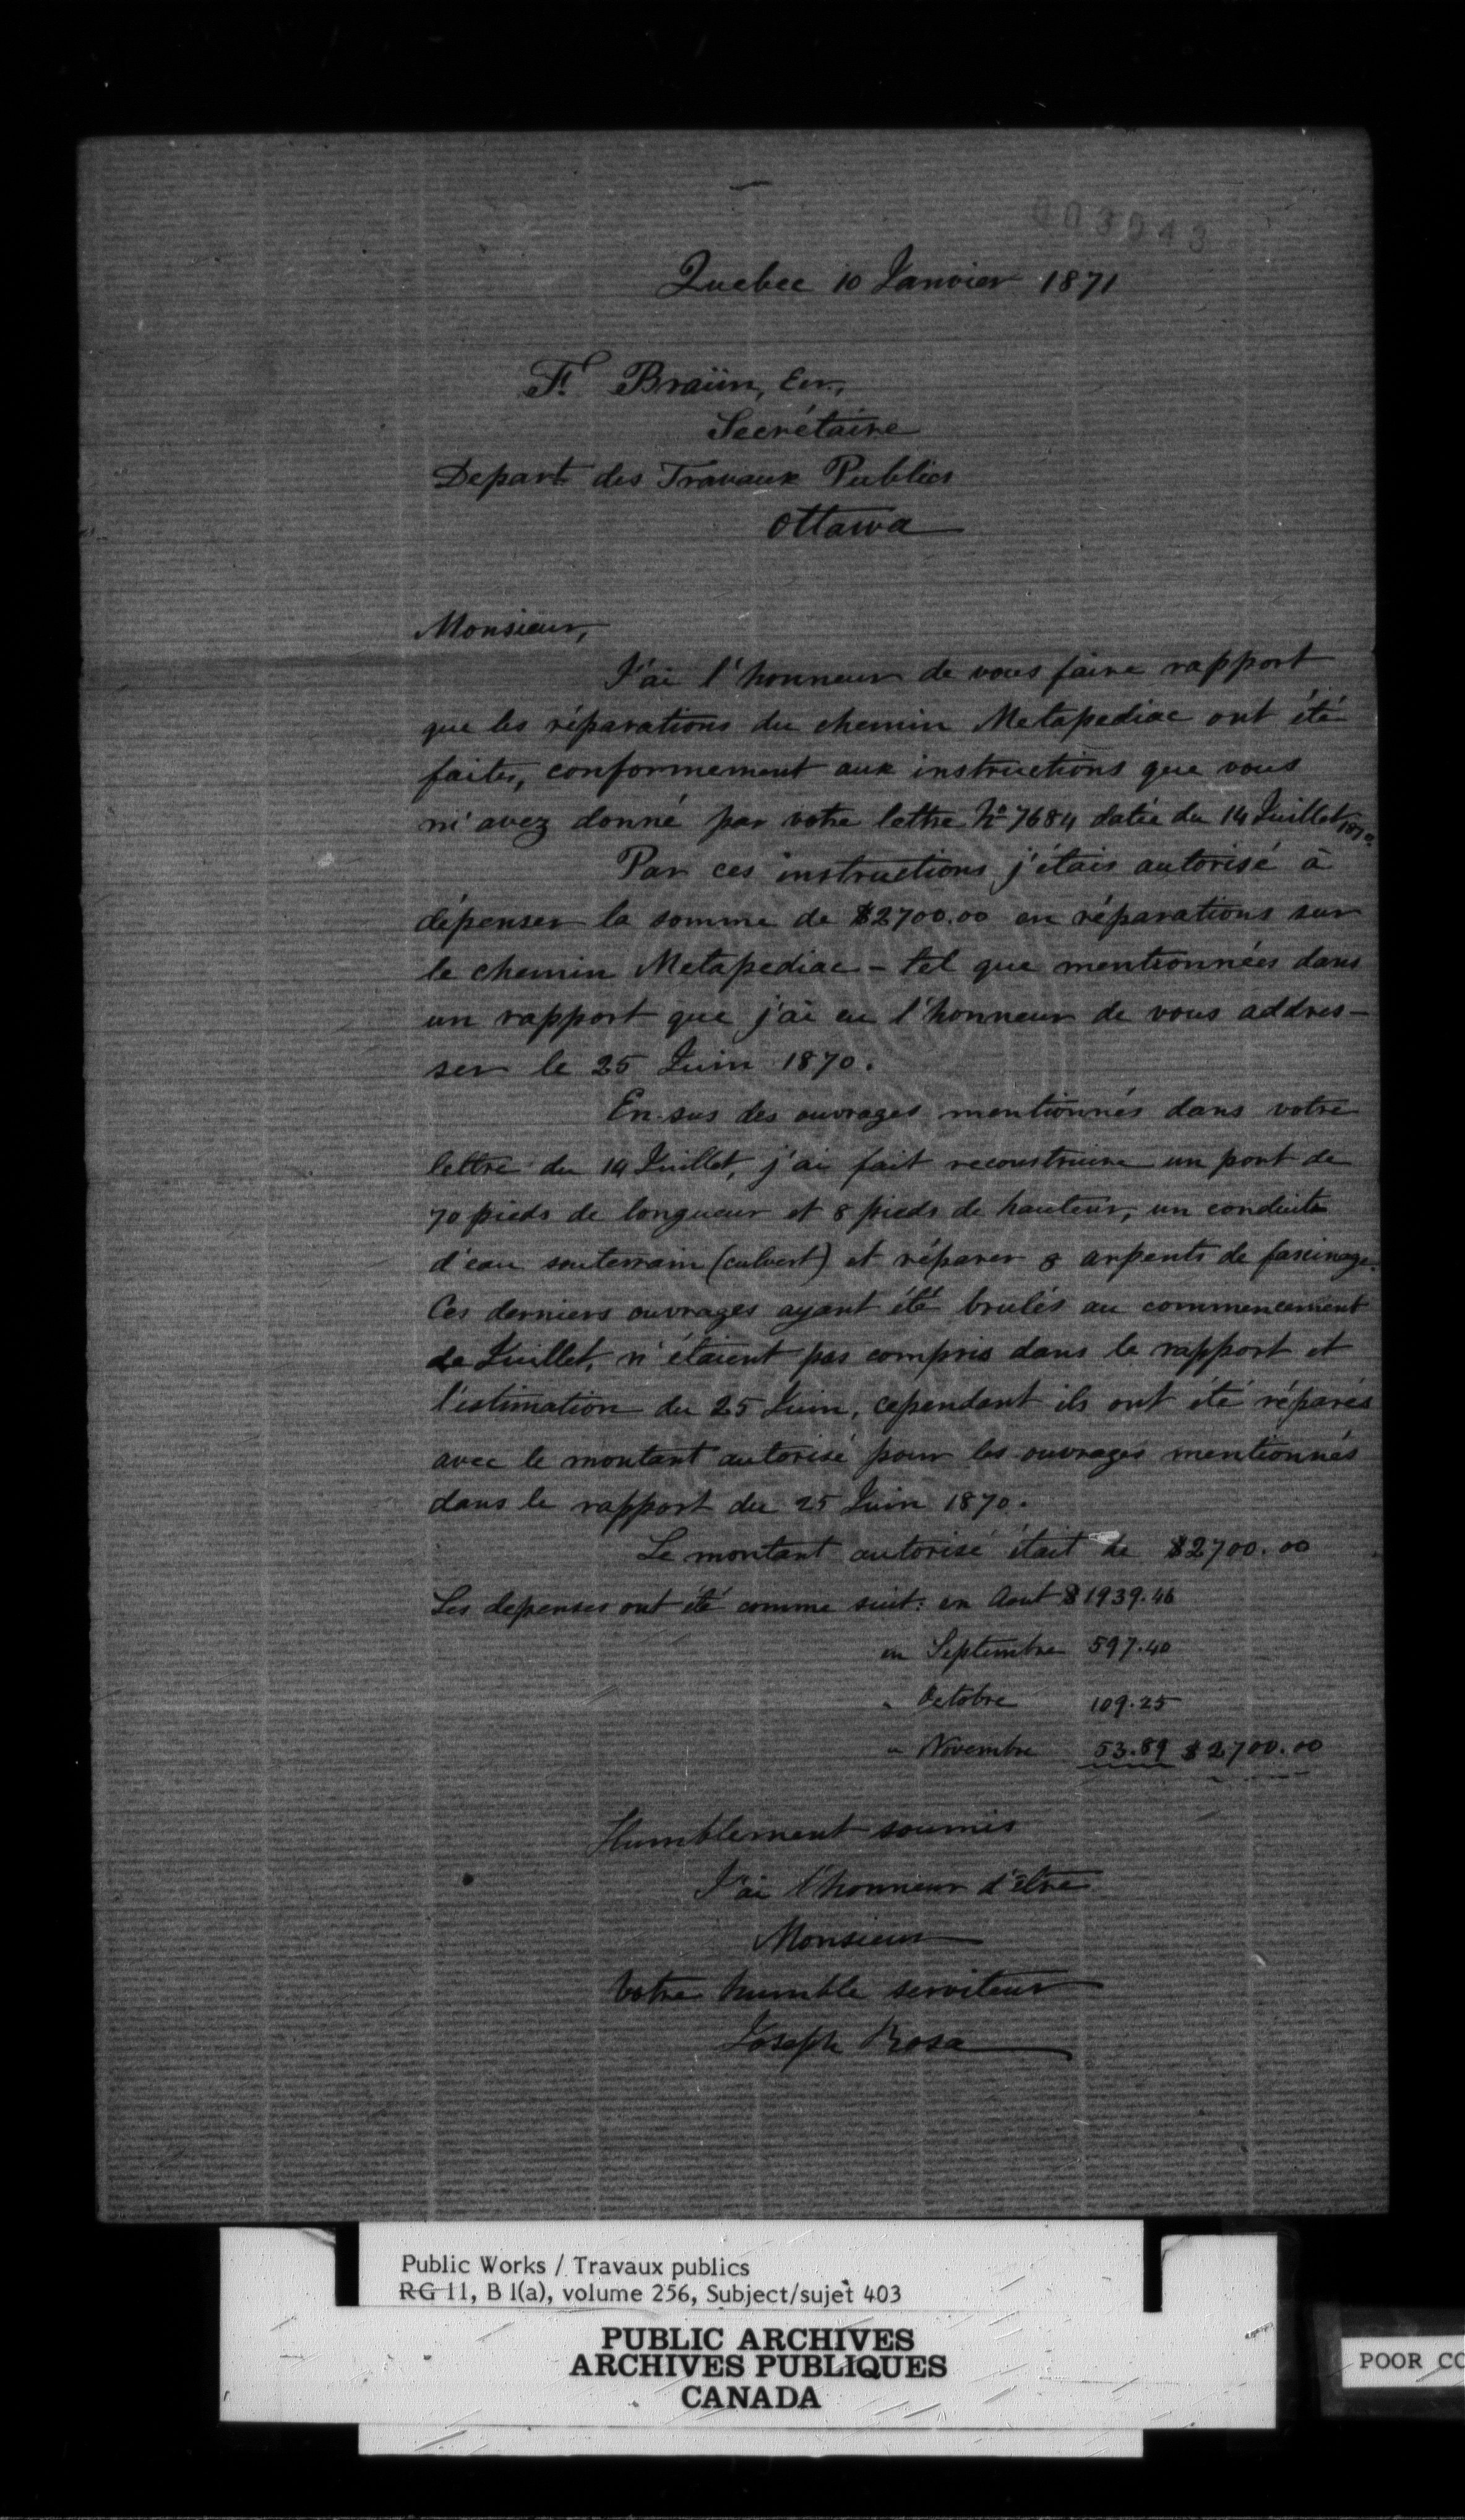 003043
Quebec 10 Janvier 1871
Fk. Braün, Ecr.,
Secrétaire
Depart des Travaux Publics
Ottawa
Monsieur,
J'ai l'honneur de vous faire rapport
que les réparations du chemin Metapediac ont été
faites, conformement aux instructions que vous
m'avez donné par votre lettre No 7684 datée du 14 Juillet 1870.
Par ces instructions j'étais autorisé à
dépenser la somme de $2700.00 en réparations sur
le chemin Metapediac - tel que mentionnées dans
un rapport que j'ai eu l'honneur de vous addres-
ser le 25 Juin 1870.
En sus des ouvrages mentionnés dans votre
lettre du 14 Juillet, j'ai fait reconstruire un pont de
70 pieds de longueur et 8 pieds de hauteur, un conduit
d'eau souterrain (culvert) et réparer 8 arpents de fascinage.
Ces derniers ouvrages ayant été brulés au commencement
de Juillet, n'étaient pas compris dans le rapport et
l'estimation du 25 Juin, cependant ils ont été réparés
avec le montant autorisé pour les ouvrages mentionnés
dans le rapport du 25 Juin 1870.
Le montant autorisé était de $2700.00
Les depenses ont été comme suit: en Aout $1939.46
en Septembre 597.40
" Octobre 109.25
" Novembre 53.89 $2700.00
Humblement soumis
J'ai l'honneur d'être
Monsieur
Votre humble serviteur
Joseph Rosa
Public Works / Travaux publics
RG 11, B 1(a), volume 256, Subject/sujet 403
PUBLIC ARCHIVES
ARCHIVES PUBLIQUES
CANADA
POOR CO